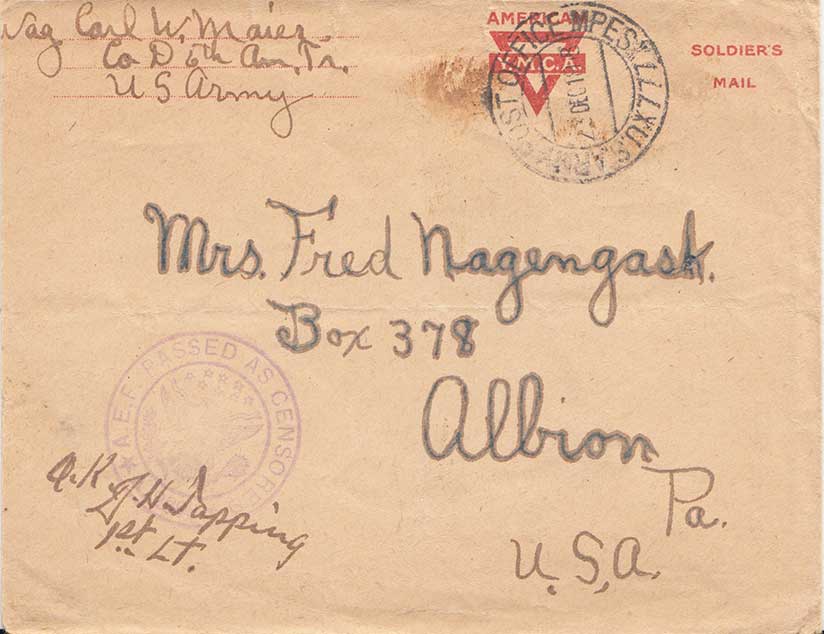 Wag Carl W. Maier
Co D 6th Am. Tr.
U S Army
AMERICAN
Y.M.C.A.
SOLDIER'S
MAIL
DEC
Mrs. Fred Nagengast.
Box 378
Albion
Pa.
U.S.A.
A.E.F. PASSED AS CENSORED
O.K. J.H. Tapping
1st Lt.